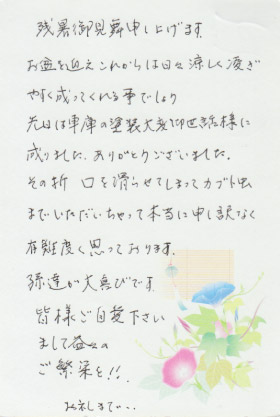 残暑御見舞申し上げます
お盆を迎えこれからは日々涼しく凌ぎ
やすく成ってくれる事でしょう
先日は車庫の塗装大変御世話様に
成りました、ありがとうございました。
その折 口を滑らせてしまってカブト虫
までいただいちゃって本当に申し訳なく
有難度く思っております。
孫達が大喜びです
皆様ご自愛下さい
まして益々の
ご繁栄を!!
お礼まで…